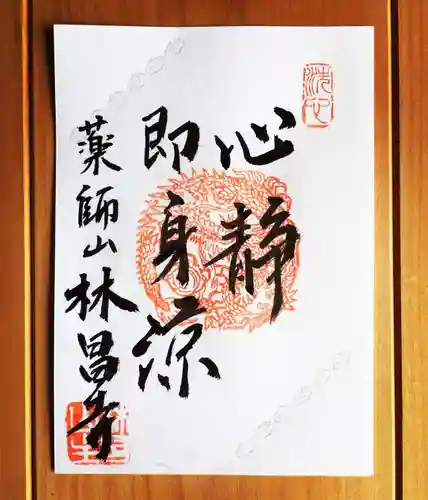 洗心
心静
即身涼
薬師山林昌寺